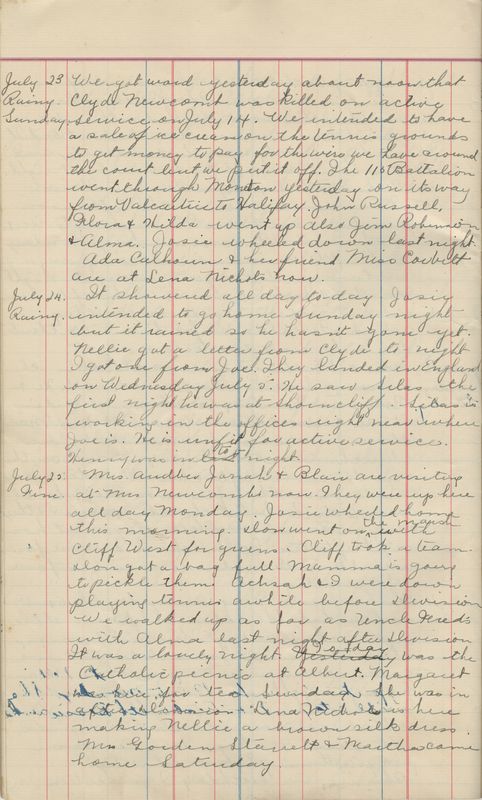 July 23 We got word yesterday about noon that
Rainy. Clyde Newcomb was killed on active
Sunday. service on July 14. We intended to have
a sale of ice cream on the tennis grounds
to get money to pay for the wire we have around
the court but we put it off. The 115 Battalion
went through Moncton yesterday on its way
from Valcartier to Halifax. John Russell,
Flora & Hilda went up also Jim Robinson
& Alma. Josie wheeled down last night.
Ada Calhoun & her friend Miss Corbett
are at Lena Nichols now.
July 24. It showered all day to-day Josie
Rainy. intended to go home Sunday night
but it rained so he hasn't gone yet.
Nellie got a letter from Clyde to-night
I got one from Joe. They landed in England
on Wednesday July 5. He saw Silas the
first night he was at Shorncliff. Silas is
working in the offices right near where
Joe is. He is unfit for active service.
Henry was in last night.
July 25 Mrs. Jonah & Blair are visiting
Fine. at Mrs Newcombs now. They were up here
all day Monday. Josie wheeled home
this morning. Don went on the marsh with
Cliff West for greens. Cliff took a team.
Don got a bag full. Mamma is going
to pickle them. Achsah & I were down
playing tennis awhile before Division
We walked up as far as Uncle Fred's
with Alma last night after Division
It was a lovely night. Yesterday To-day was the
Catholic picnic at Albert. Margaret
for tea Sunday. She was in
Lena Nichols is here
making Nellie a brown silk dress.
Mrs Gorden Stewett & Martha came
home Saturday.